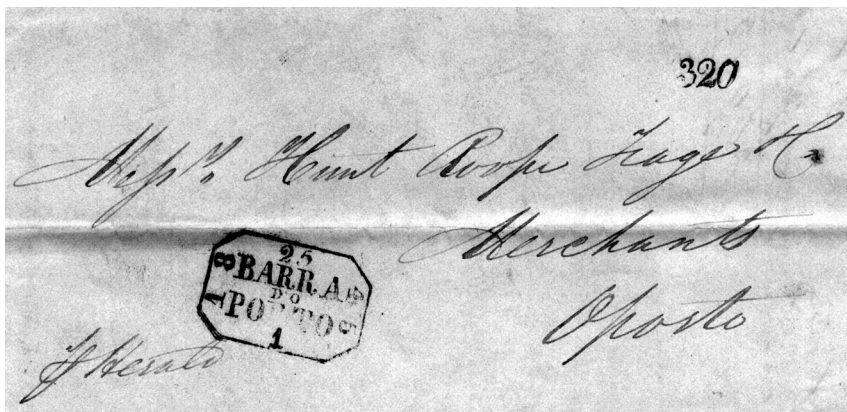 320
Messrs. Hunt Roope Teage & Co
Merchants
Oporto
25
BARRA
DO
PORTO
1
18
46
Herald